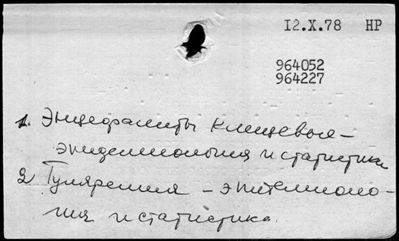 12.X.78 НР
964052
964227
1. Энцефалиты клещевые -
эпидемиология и статистика
2 Туляремия - эпидемиоло-
гия и статистика.